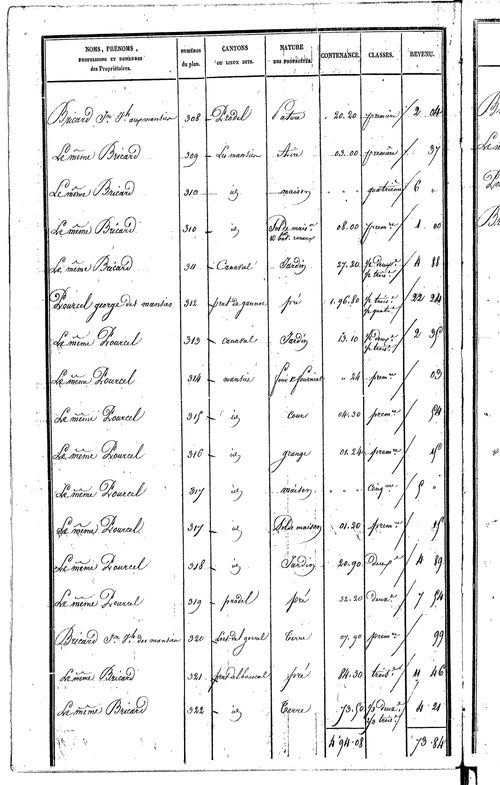 NOMS, PRÉNOMS, PROFESSIONS ET DEMEURES des Propriétaires. NUMÉROS du plan. CANTONS OU LIEUX DITS. NATURE DES PROPRIÉTÉS. CONTENANCE. CLASSES. REVENU.
Bricard Jn Jh aux mantins 308 Prodel Pature 20.20 premiere 2 04
Le même Bricard 309 Le mantin Aire 03.00 première 37
Le même Bricard 310 id maison " " quatrième 6 "
Le même Bricard 310 id Sol de mais.n 08.00 prem.re 1 00
Le même Bricard 311 Canaval Jardin 27.20 4 88
Pourcel george des mantins 312 prat de pré 1.96.80 22 24
Le même Pourcel 313 canaval Jardin 13.10 2 35
Le même Pourcel 314 mantin four & fournial " 24 prem.re 03
Le même Pourcel 315 id Cour 04.30 prem.re 54
Le même Pourcel 316 id grange 01.24 prem.re 15
Le même Pourcel 317 id maison cinq.me 5 "
Le même Pourcel 317 id Sol de maison 01.20 prem.re 15
Le même Pourcel 318 id Jardin 20.90 deux.e 4 89
Le même Pourcel 319 prodel pré 32.20 deux.e 7 54
Bricard Jn Jh des mantins 320 Terre 07.90 prem.re 99
Le même Bricard 321 pré 84.30 trois.e 11 46
Le même Bricard 322 id Terre 73.50 1/2 deux.e 1/2 trois.e 4 21
4.94.08 73.84